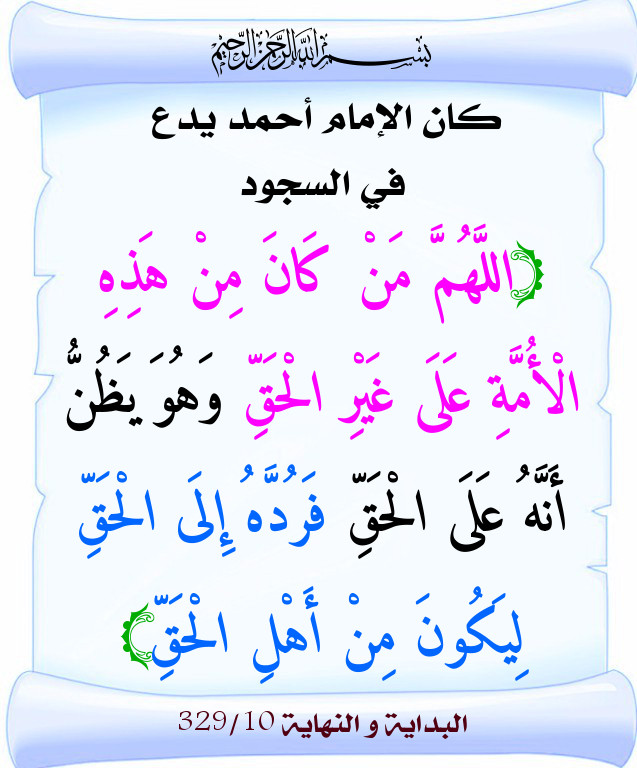 بسم الله الرحمن الرحيم
كان الإمام أحمد يدع
في السجود
اللَّهُمَّ مَنْ كَانَ مِنْ هَذِهِ
الْأُمَّةِ عَلَى غَيْرِ الْحَقِّ وَهُوَ يَظُنُّ
أَنَّهُ عَلَى الْحَقِّ فَرُدَّهُ إِلَى الْحَقِّ
لِيَكُونَ مِنْ أَهْلِ الْحَقِّ
البداية و النهاية 329/10